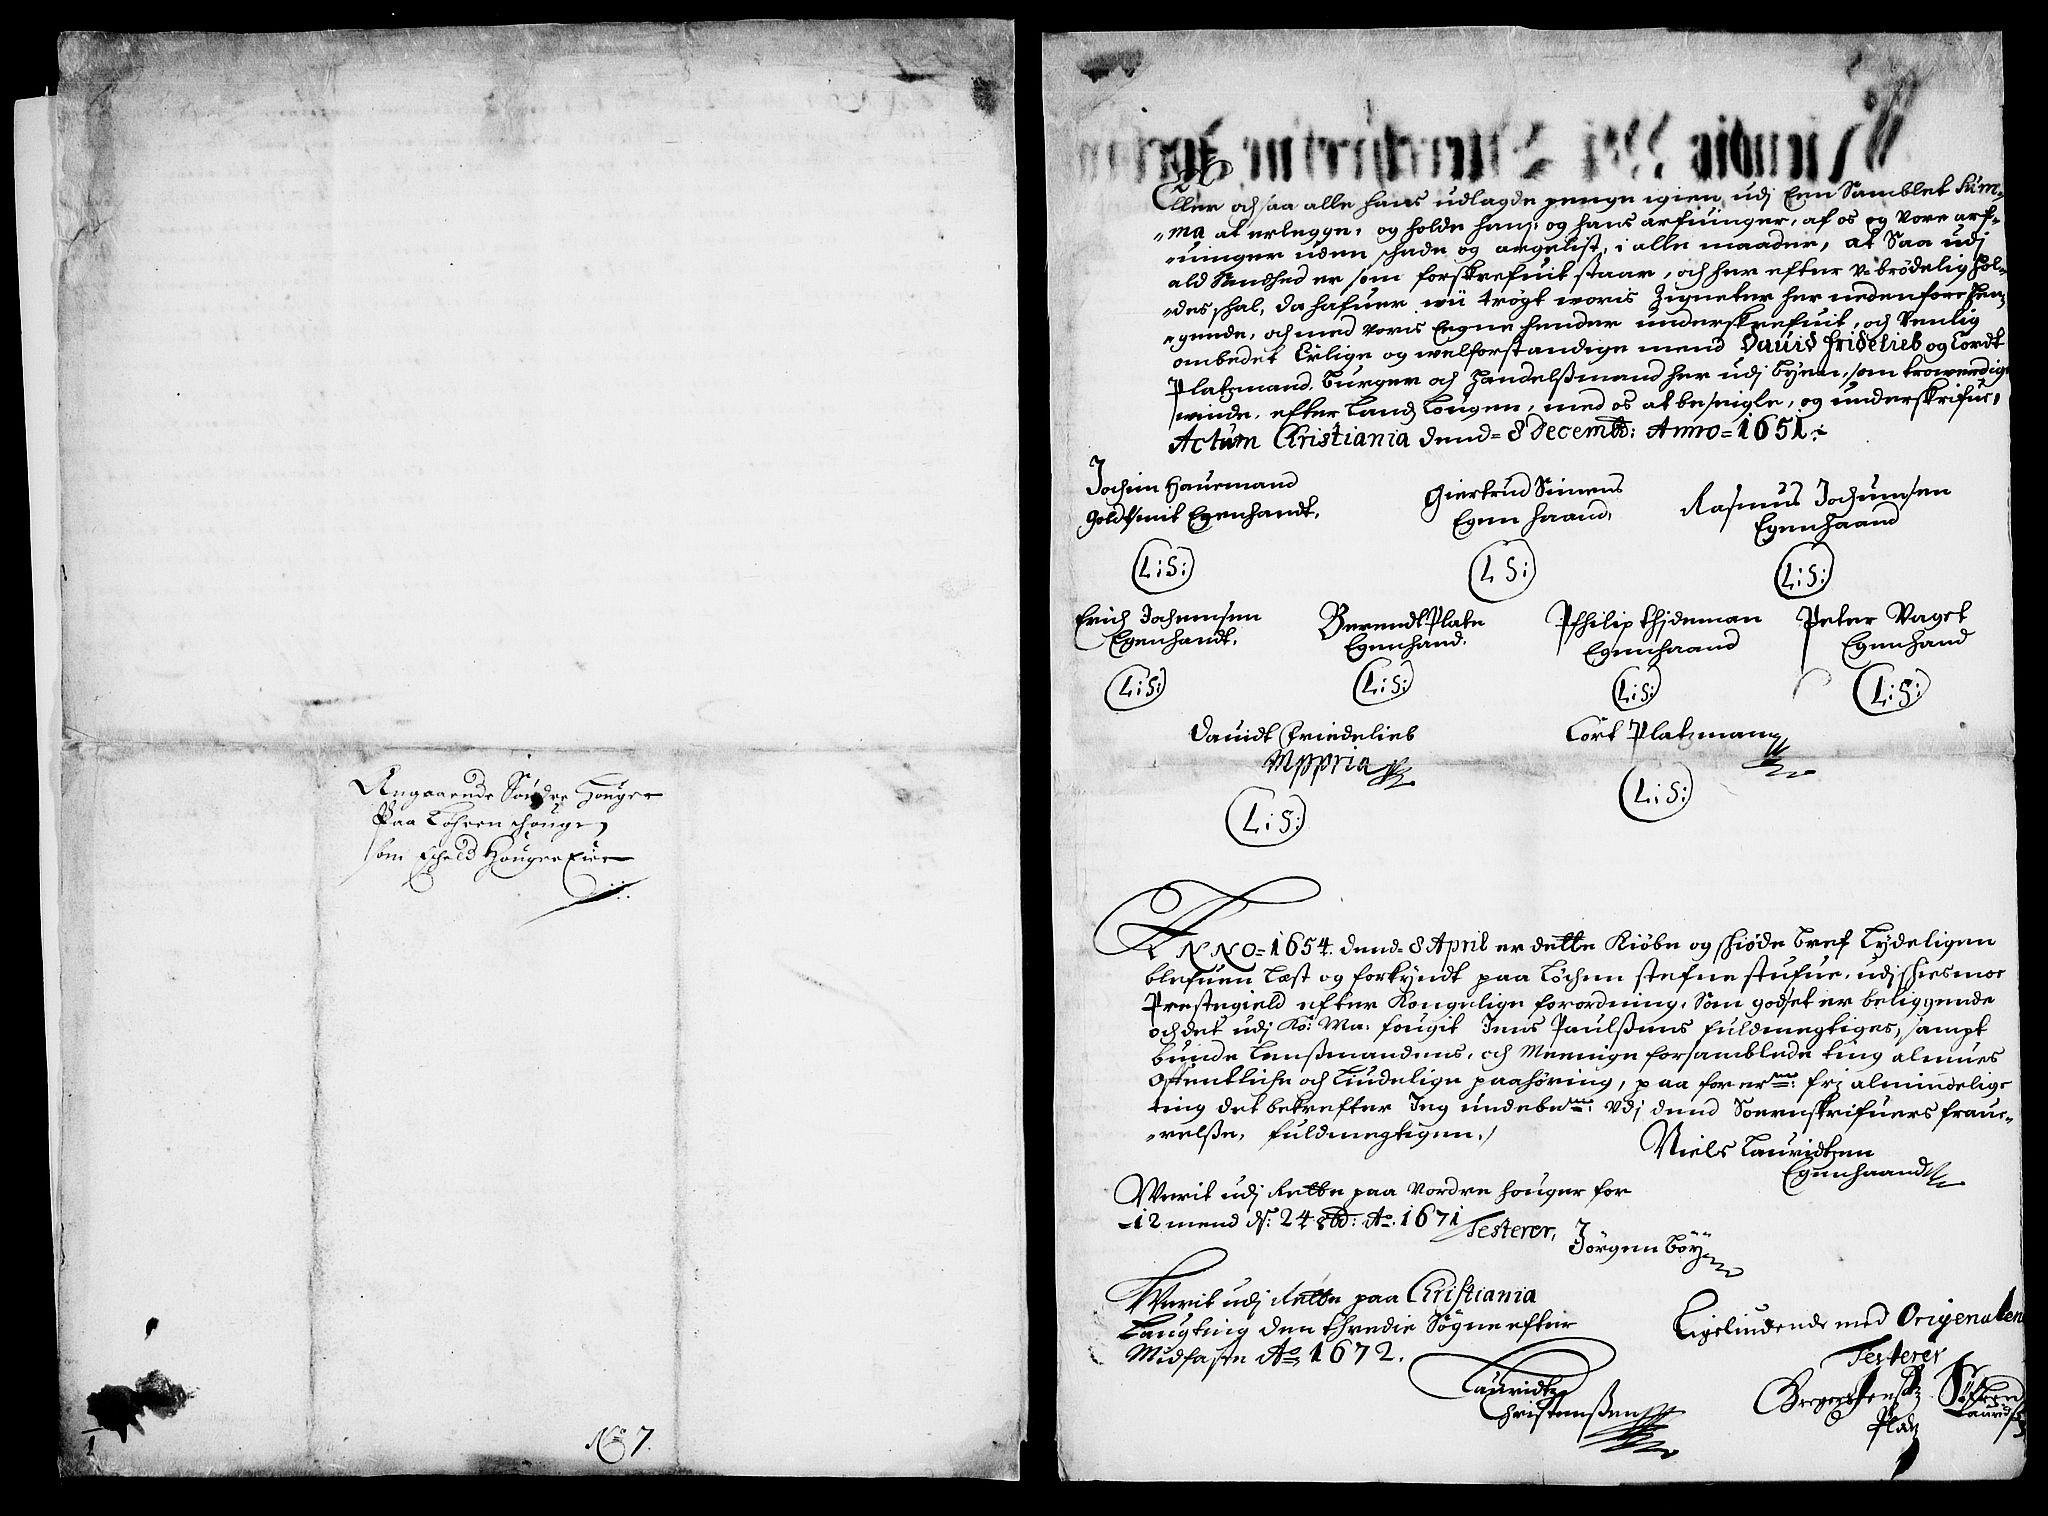 Angaaende Søndre Houger
Paa Løhren schouge
som Eschild Houger Eier
No 7.
Eller och saa alle hans udlagde penge igien udj Een Samblet Sum-
ma at erlegge, og holde hans og hans arfuinger, af os og vore arf-
uinger uden schade og argelist, i alle maader, at Saa udj
ald Sandhed er som forskrefuit staar, och her efter v-brødelig hol-
des schal, da hafuer wii trøgt woris Zigneter her nedenfore hen-
gende, och med voris Eegne hender underskrefuit, och Venlig
ombedet Erlige og welforstandige mend David fridelieb og Cordt
Platzmand, Burger och Handelsßmand her udj byen, som trowerdige
winde, efter Landz Lougen, med os at beseigle, og underskrifue,
Actum Christiania dend= 8 Decemb: Anno= 1651.
Jochim Hauemand
goldtsmit Egenhandt.
Giertrud Simens
Egen haand,
Rasmus Jochumsen
Egenhaand
L: S:
L S:
L: S:
Erich Jochumsen
Egenhandt.
Berendt Plate
Egenhand.
Philip Thideman
Egenhaand
Peter Vaget
Egenhand
L: S:
L: S:
L: S:
L: S:
Dauidt Friedelieb
Mppria
Cort Platzman
L: S:
L: S:
ANNO= 1654. dend= 8 April er dette Kiøbe og schiøde bref Lydeligen
blefuen Læst og forkyndt paa Løchen stefne stufue, udj schiesmoe
Prestegield efter Kongelige forordning, Som godset er beliggende
och det udj Ko: Ma: fougit Jens Paulsßens fuldmegtiges, sampt
bunde Lensßmandens, och Meenige forsamblede ting almues
Offentliche och Liudelige paahøring, paa forerne: frj almindelige
ting det bekrefter Jeg undebne: vdj dend Soernskrifuers fraue-
relsße, fuldmegtigen./
Niels Lauridtzen
Egenhaand
Werit udj Rette paa Nordre houger for
12 mend d: 24 8b: Ao. 1671
Testerer,
Jörgen Böÿ
Werit udj Rette paa Christiania
Laugting den thredie Søgne efter
Midfaste Ao 1672.
Lauridtz
Christensßen
Ligeliudende med Origenalen
Testerer
Gregers Jensßen
Platz
Søfren
Lauridsß